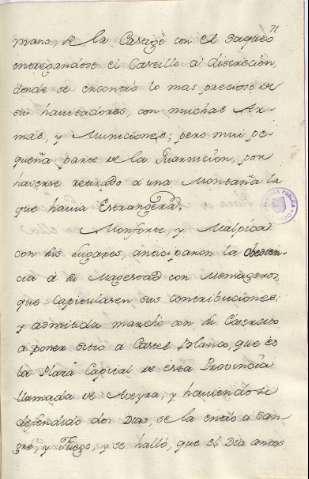 71
mano, de la Care con el Saqueo
entregandose el Castillo á discrecion,
donde se encontró lo mas precioso de
sus havitadores, con muchas Ar-
mas, y Municiones; pero mui pe-
queña parte de la Guarnicion, por
haverse retirado a una Montaña la
que havia Estrangera.
Monforte, y Malpica
con sus lugares, anticiparon la obedien-
cia a su Magestad con Mensageros,
que capitulasen sus contribuciones;
y admitida marchó con su Exercito
a poner sitio a Castel Blanco, que es
la Plaza Capital de esta Provincia
llamada de Beyra, y haviendose
defendido dos Dias, se la entró a San-
gre, y Fuego, y se halló, que el Dia antes